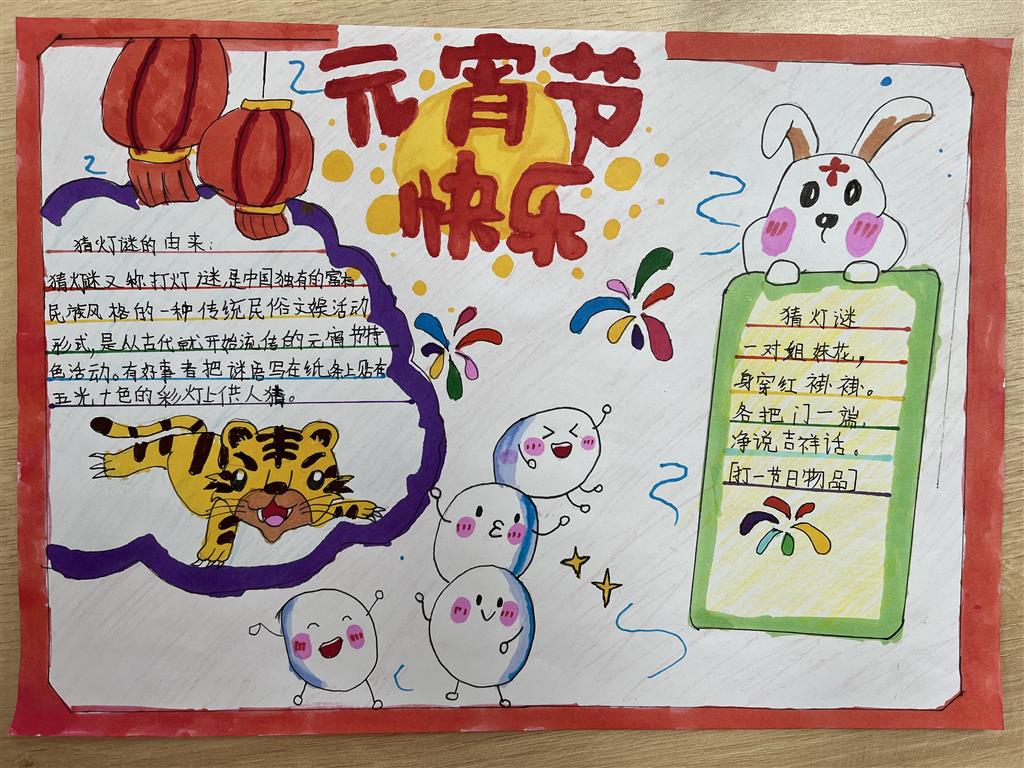 元宵节
快乐
猜灯谜的由来:
猜灯谜又称打灯谜是中国独有的富有
民族风格的一种传统民俗文娱活动
形式,是从古代就开始流传的元宵节特
色活动。有好事者把谜语写在纸条上贴在
五光十色的彩灯上供人猜。
猜灯谜
一对姐妹花,
身穿红褂褂。
各把门一端,
净说吉祥话。
[打一节日物品]